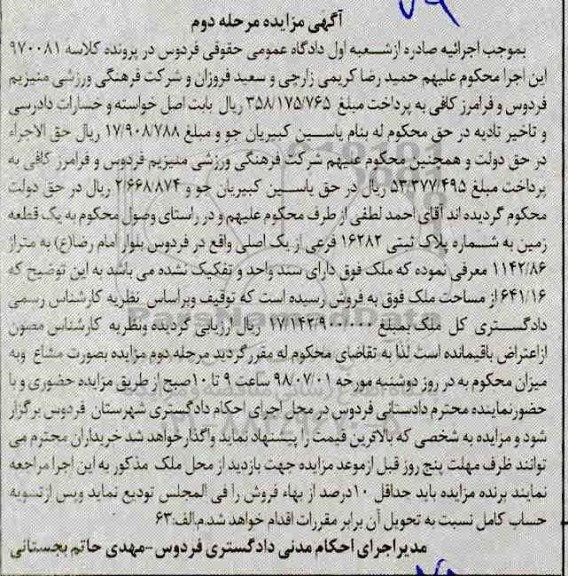 آگهی مزایده مرحله دوم
بموجب اجرائیه صادره ازشعبه اول دادگاه عمومی حقوقی فردوس در پرونده کلاسه ۹۷۰۰۸۱
این اجرا محکوم علیهم حمید رضا کریمی زارچی و سعید فروزان و شرکت فرهنگی ورزشی منیزیم
فردوس و فرامرز کافی به پرداخت مبلغ ۳۵۸/۱۷۵/۷۶۵ ریال بابت اصل خواسته و خسارات دادرسی
و تاخیر تادیه در حق محکوم له بنام یاسین کبیریان جو و مبلغ ۱۷/۹۰۸/۷۸۸ ریال حق الاجراء
در حق دولت و همچنین محکوم علیهم شرکت فرهنگی ورزشی منیزیم فردوس و فرامرز کافی به
پرداخت مبلغ ۵۳/۳۷۷/۴۹۵ ریال در حق یاسین کبیریان جو و ۲/۶۶۸/۸۷۴ ریال در حق دولت
محکوم گردیده اند آقای احمد لطفی از طرف محکوم علیهم و در راستای وصول محکوم به یک قطعه
زمین به شماره پلاک ثبتی ۱۶۲۸۲ فرعی از یک اصلی واقع در فردوس بلوار امام رضا(ع) به متراژ
۱۱۴۲/۸۶ معرفی نموده که ملک فوق دارای سند واحد و تفکیک نشده می باشد به این توضیح که
۶۴۱/۱۶ از مساحت ملک فوق به فروش رسیده است که توقیف وبراساس نظریه کارشناس رسمی
دادگستری کل ملک بمبلغ ۱۷/۱۴۳/۹۰۰/۰۰۰ ریال ارزیابی گردیده ونظریه کارشناس مصون
ازاعتراض باقیمانده است لذا به تقاضای محکوم له مقرر گردید مرحله دوم مزایده بصورت مشاع وبه
میزان محکوم به در روز دوشنبه مورخه ۹۸/۰۷/۰۱ ساعت ۹ تا ۱۰صبح از طریق مزایده حضوری و با
حضورنماینده محترم دادستانی فردوس در محل اجرای احکام دادگستری شهرستان فردوس برگزار
شود و مزایده به شخصی که بالاترین قیمت را پیشنهاد نماید واگذار خواهد شد خریداران محترم می
توانند ظرف مهلت پنج روز قبل ازموعد مزایده جهت بازدید از محل ملک مذکور به این اجرا مراجعه
نمایند برنده مزایده باید حداقل ۱۰درصد از بهاء فروش را فی المجلس تودیع نماید وپس ازتسویه
حساب کامل نسبت به تحویل آن برابر مقررات اقدام خواهد شد.م.الف:۶۳
مدیر اجرای احکام مدنی دادگستری فردوس-مهدی حاتم بجستانی